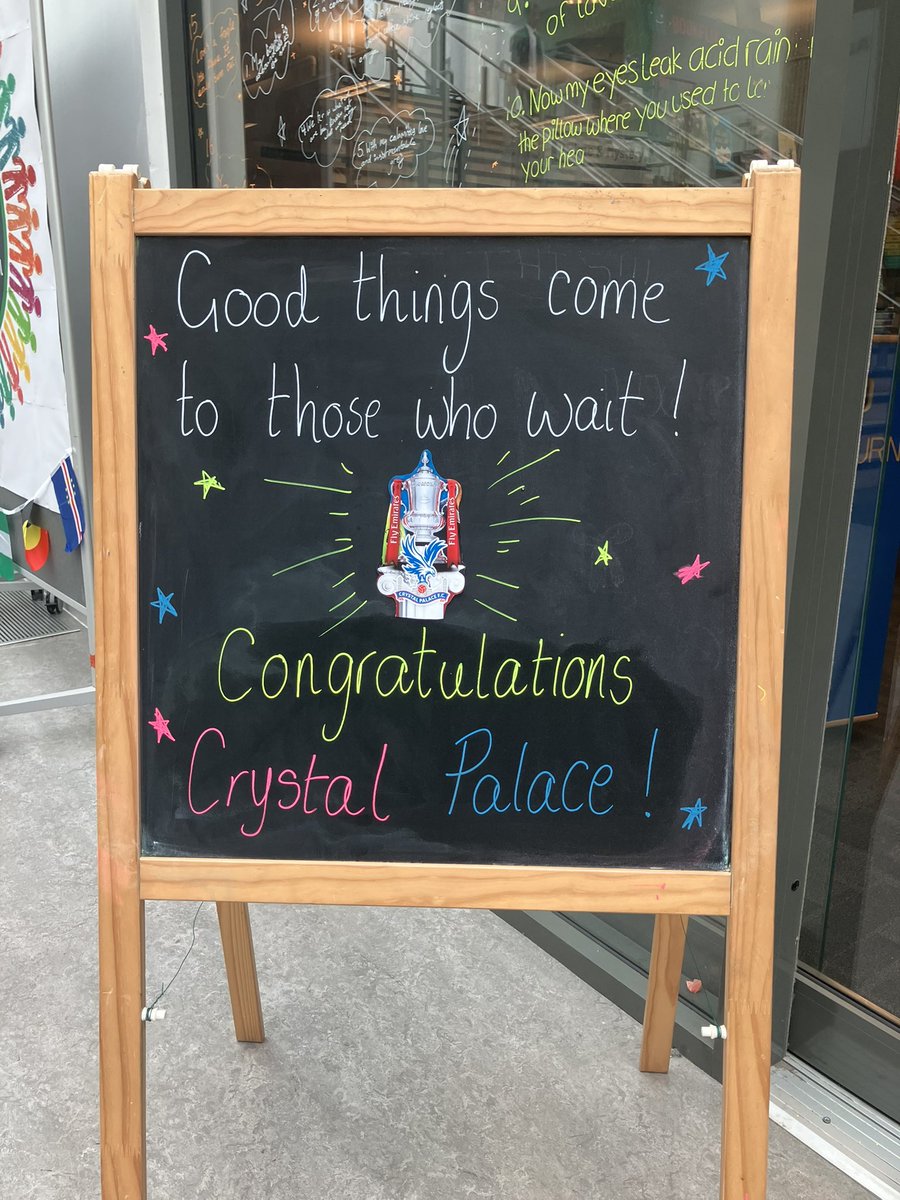 of lov
10. Now my eyes leak acid rain
the pillow where you used to
your hea
Good things come
to those who wait!
Fly Emirates Fly Emirates
CRYSTAL PALACE F.C.
Congratulations
Crystal Palace!
URN